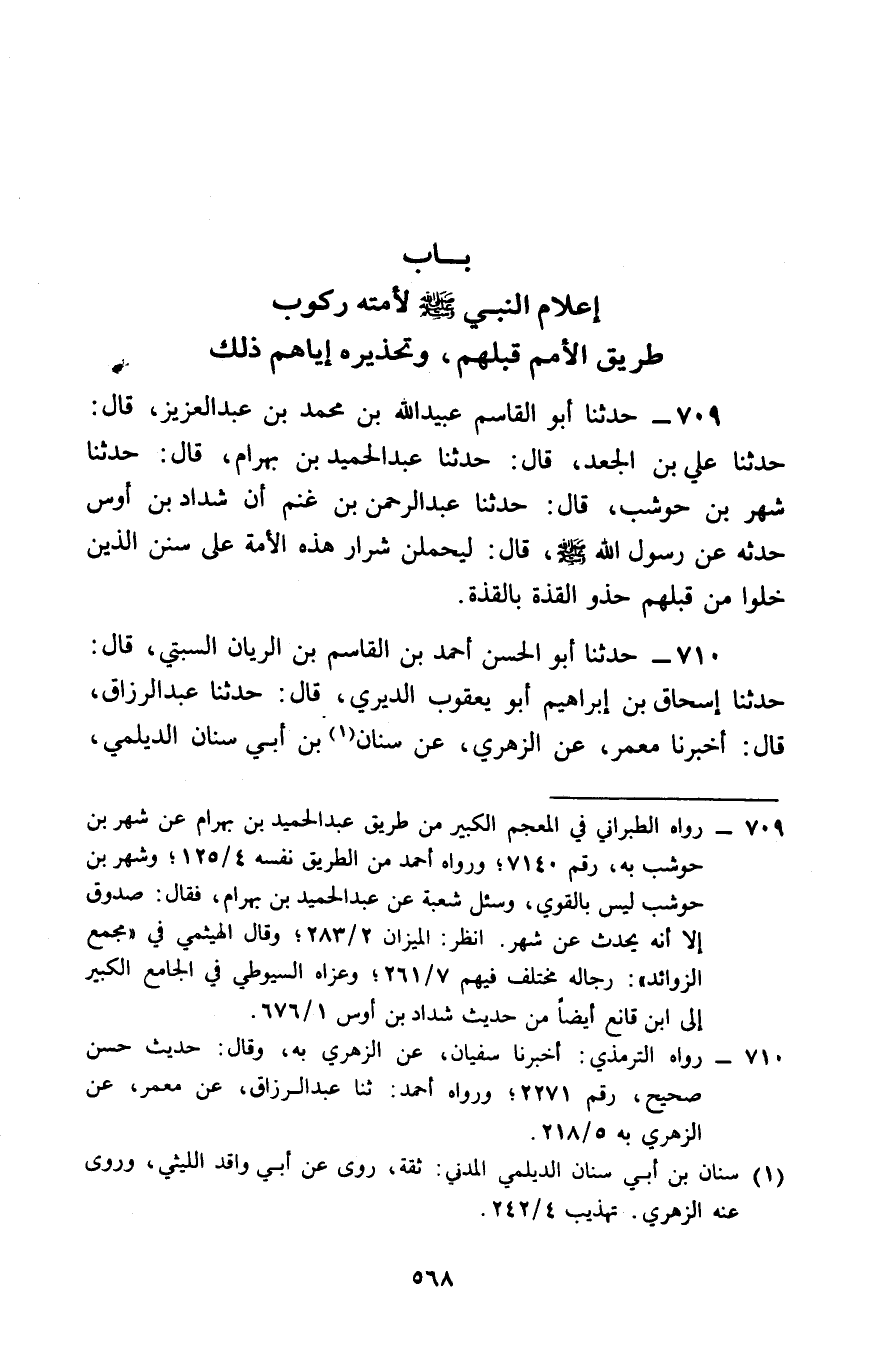 بـــاب
إعلام النبـي ﷺ لأمته ركوب
طريق الأمم قبلهم، وتحذيره إياهم ذلك
٧٠٩ ــ حدثنا أبو القاسم عبيدالله بن محمد بن عبدالعزيز، قال:
حدثنا علي بن الجعد، قال: حدثنا عبدالحميد بن بهرام، قال: حدثنا
شهر بن حوشب، قال: حدثنا عبدالرحمن بن غنم أن شداد بن أوس
حدثه عن رسول الله ﷺ، قال: ليحملن شرار هذه الأمة على سنن الذين
خلوا من قبلهم حذو القذة بالقذة.
٧١٠ ــ حدثنا أبو الحسن أحمد بن القاسم بن الريان السبتي، قال:
حدثنا إسحاق بن إبراهيم أبو يعقوب الديري، قال: حدثنا عبدالرزاق،
قال: أخبرنا معمر، عن الزهري، عن سنان(١) بن أبـي سنان الديلمي،
٧٠٩ ــ رواه الطبراني في المعجم الكبير من طريق عبدالحميد بن بهرام عن شهر بن
حوشب به، رقم ٧١٤٠؛ ورواه أحمد من الطريق نفسه ١٢٥/٤؛ وشهر بن
حوشب ليس بالقوي، وسئل شعبة عن عبدالحميد بن بهرام، فقال: صدوق
إلا أنه يحدث عن شهر. انظر: الميزان ٢٨٣/٢؛ وقال الهيثمي في «مجمع
الزوائد»: رجاله مختلف فيهم ٢٦١/٧؛ وعزاه السيوطي في الجامع الكبير
إلى ابن قانع أيضاً من حديث شداد بن أوس ٦٧٦/١.
٧١٠ ــ رواه الترمذي: أخبرنا سفيان، عن الزهري به، وقال: حديث حسن
صحيح، رقم ٢٢٧١؛ ورواه أحمد: ثنا عبدالـرزاق، عن معمر، عن
الزهري به ٢١٨/٥.
(١) سنان بن أبـي سنان الديلمي المدني: ثقة، روى عن أبـي واقد الليثي، وروى
عنه الزهري. تهذيب ٢٤٢/٤.
٥٦٨